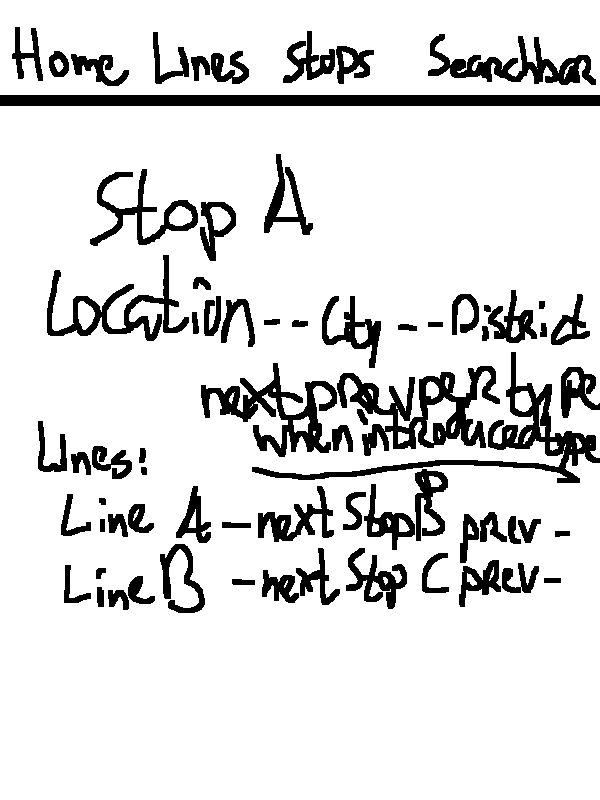 Home Lines Stops Searchbar
Stop A
Location -- City -- District
next prev per type
when introduced type
Lines:
Line A - next Stop B prev -
Line B - next Stop C prev -